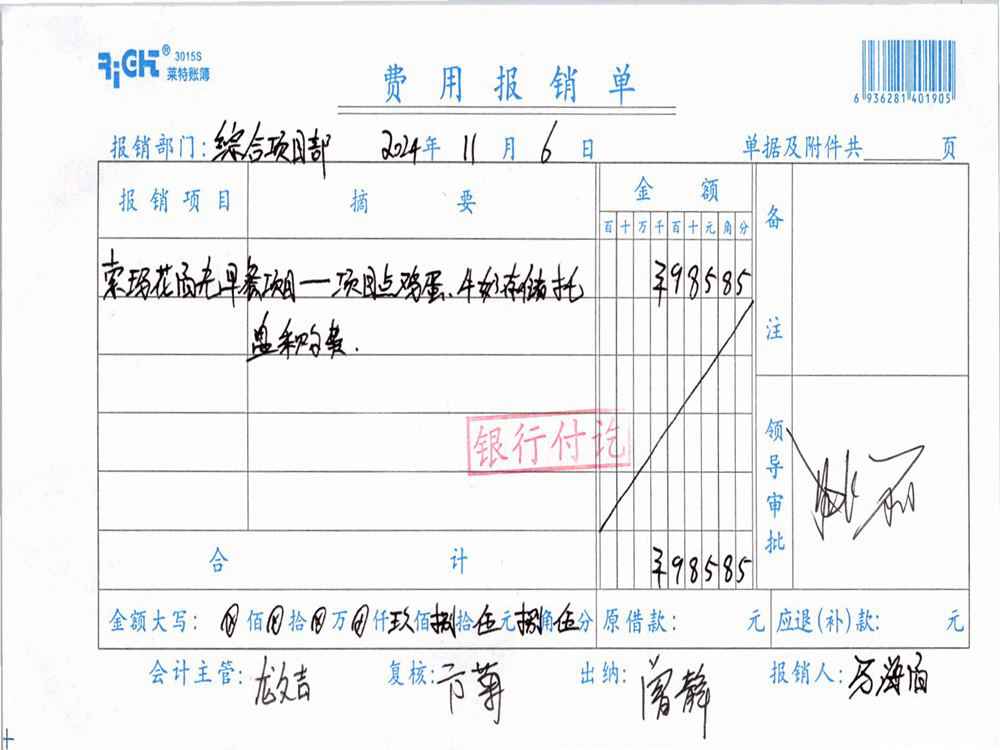 RiGHT® 3015S
莱特账簿
费用报销单
6 936281 401905
报销部门:综合项目部 2024年 11 月 6 日 单据及附件共 页
报销项目 摘要 金额 备注
百十万千百十元角分
早餐项目一项目点鸡蛋、牛奶存储托 ¥98585
盘采购费.
银行付讫
领导审批
合计 ¥98585
金额大写: 佰 拾 万 仟玖佰捌拾伍元捌角伍分 原借款: 元 应退(补)款: 元
会计主管:龙文吉 复核: 出纳:曾静 报销人:万海涵